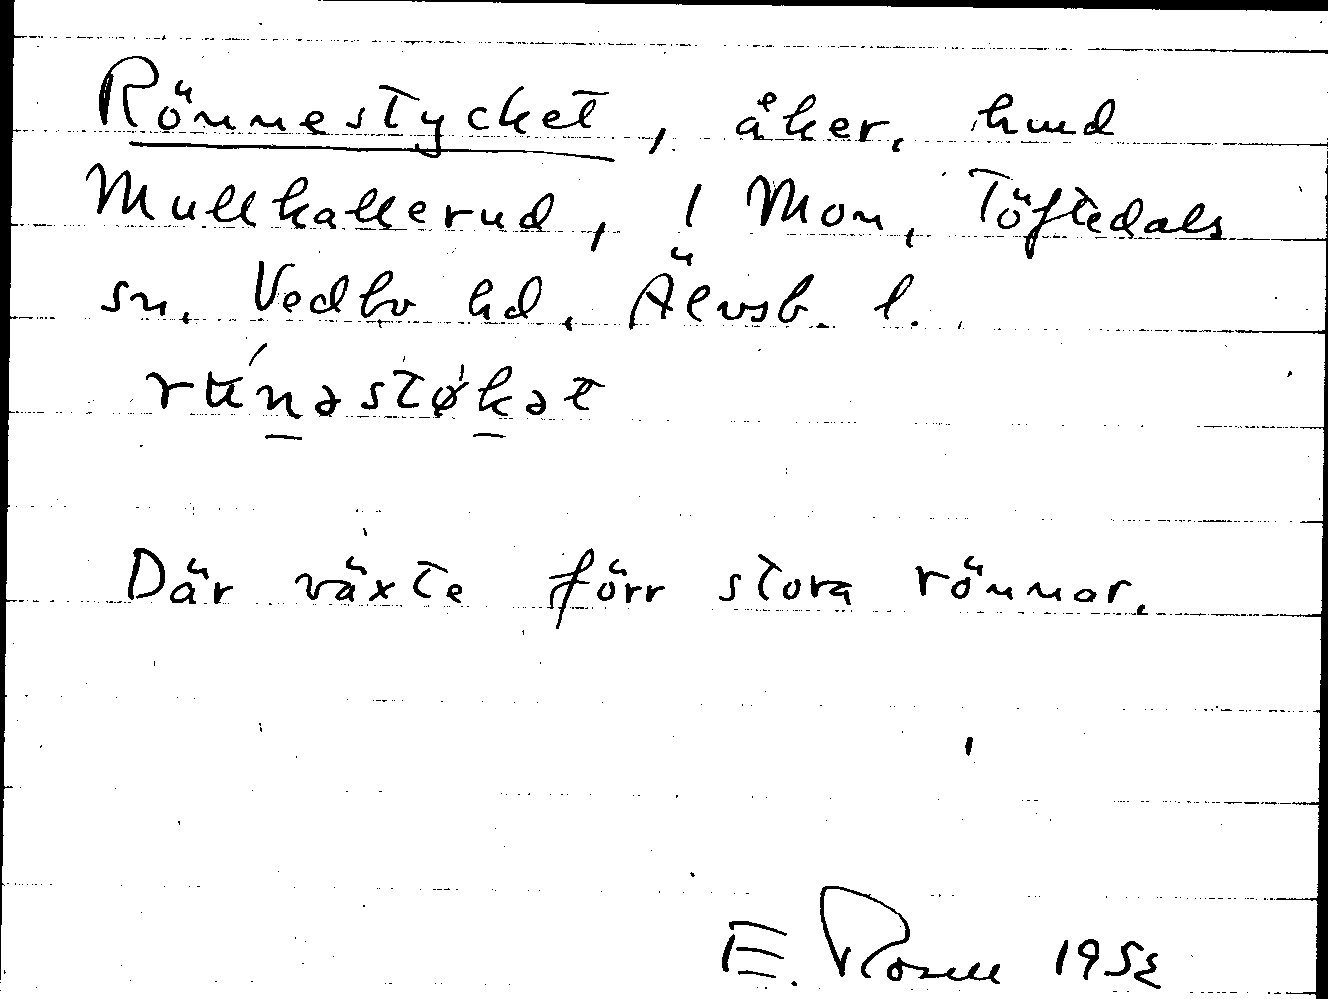 Rönnestycket, åker, hmd
Mullkallerud, 1 Mon, Töftedals
sn. Vedbo hd, Älvsb. l.
rʉ́nəstø̀kət
Där växte förr stora rönnar.
E. Rosell 195